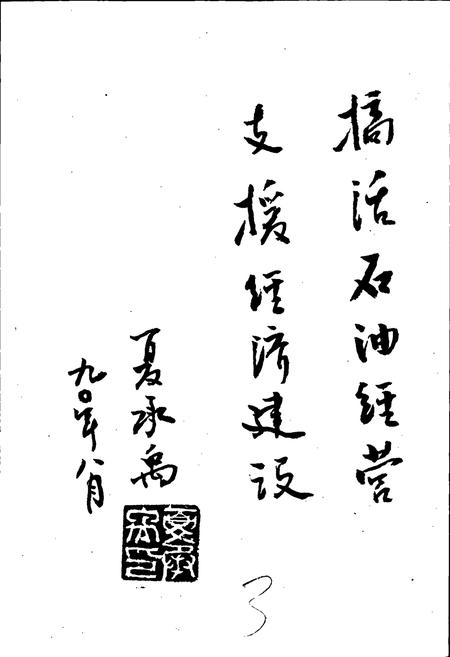 搞活石油经营
支援经济建设
夏承禹
九〇年八月
3